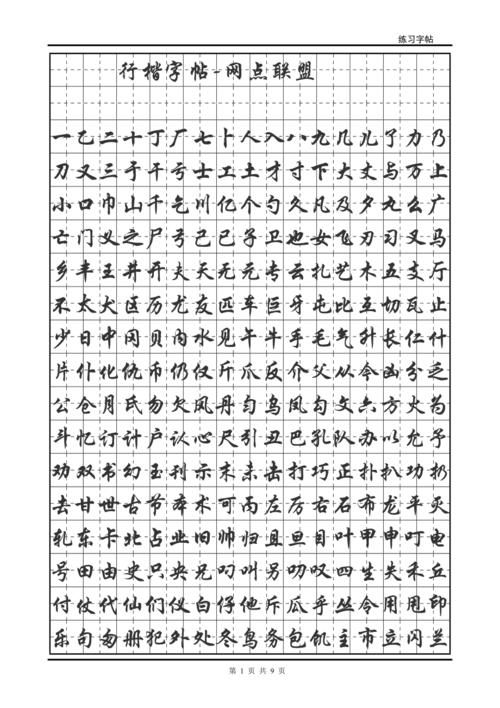 练习字帖
行楷字帖-网点联盟
一乙二十丁厂七卜人入八九几儿了力乃
刀又三于干亏士工土才寸下大丈与万上
小口巾山千乞川亿个勺久凡及夕丸么广
亡门义之尸弓己已子卫也女飞刃习叉马
乡丰王井开夫天无元专云扎艺木五支厅
不太犬区历尤友匹车巨牙屯比互切瓦止
少日中冈贝内水见午牛手毛气升长仁什
片仆化仇币仍仅斤爪反介父从今凶分乏
公仓月氏勿欠风丹匀乌凤勾文六方火为
斗忆订计户认心尺引丑巴孔队办以允予
劝双书幻玉刊示末未击打巧正扑扒功扔
去甘世古节本术可丙左厉右石布龙平灭
轧东卡北占业旧帅归且旦目叶甲申叮电
号田由史只央兄叼叫另叨叹四生失禾丘
付仗代仙们仪白仔他斥瓜乎丛令用甩印
乐句匆册犯外处冬鸟务包饥主市立闪兰
第 1 页 共 9 页